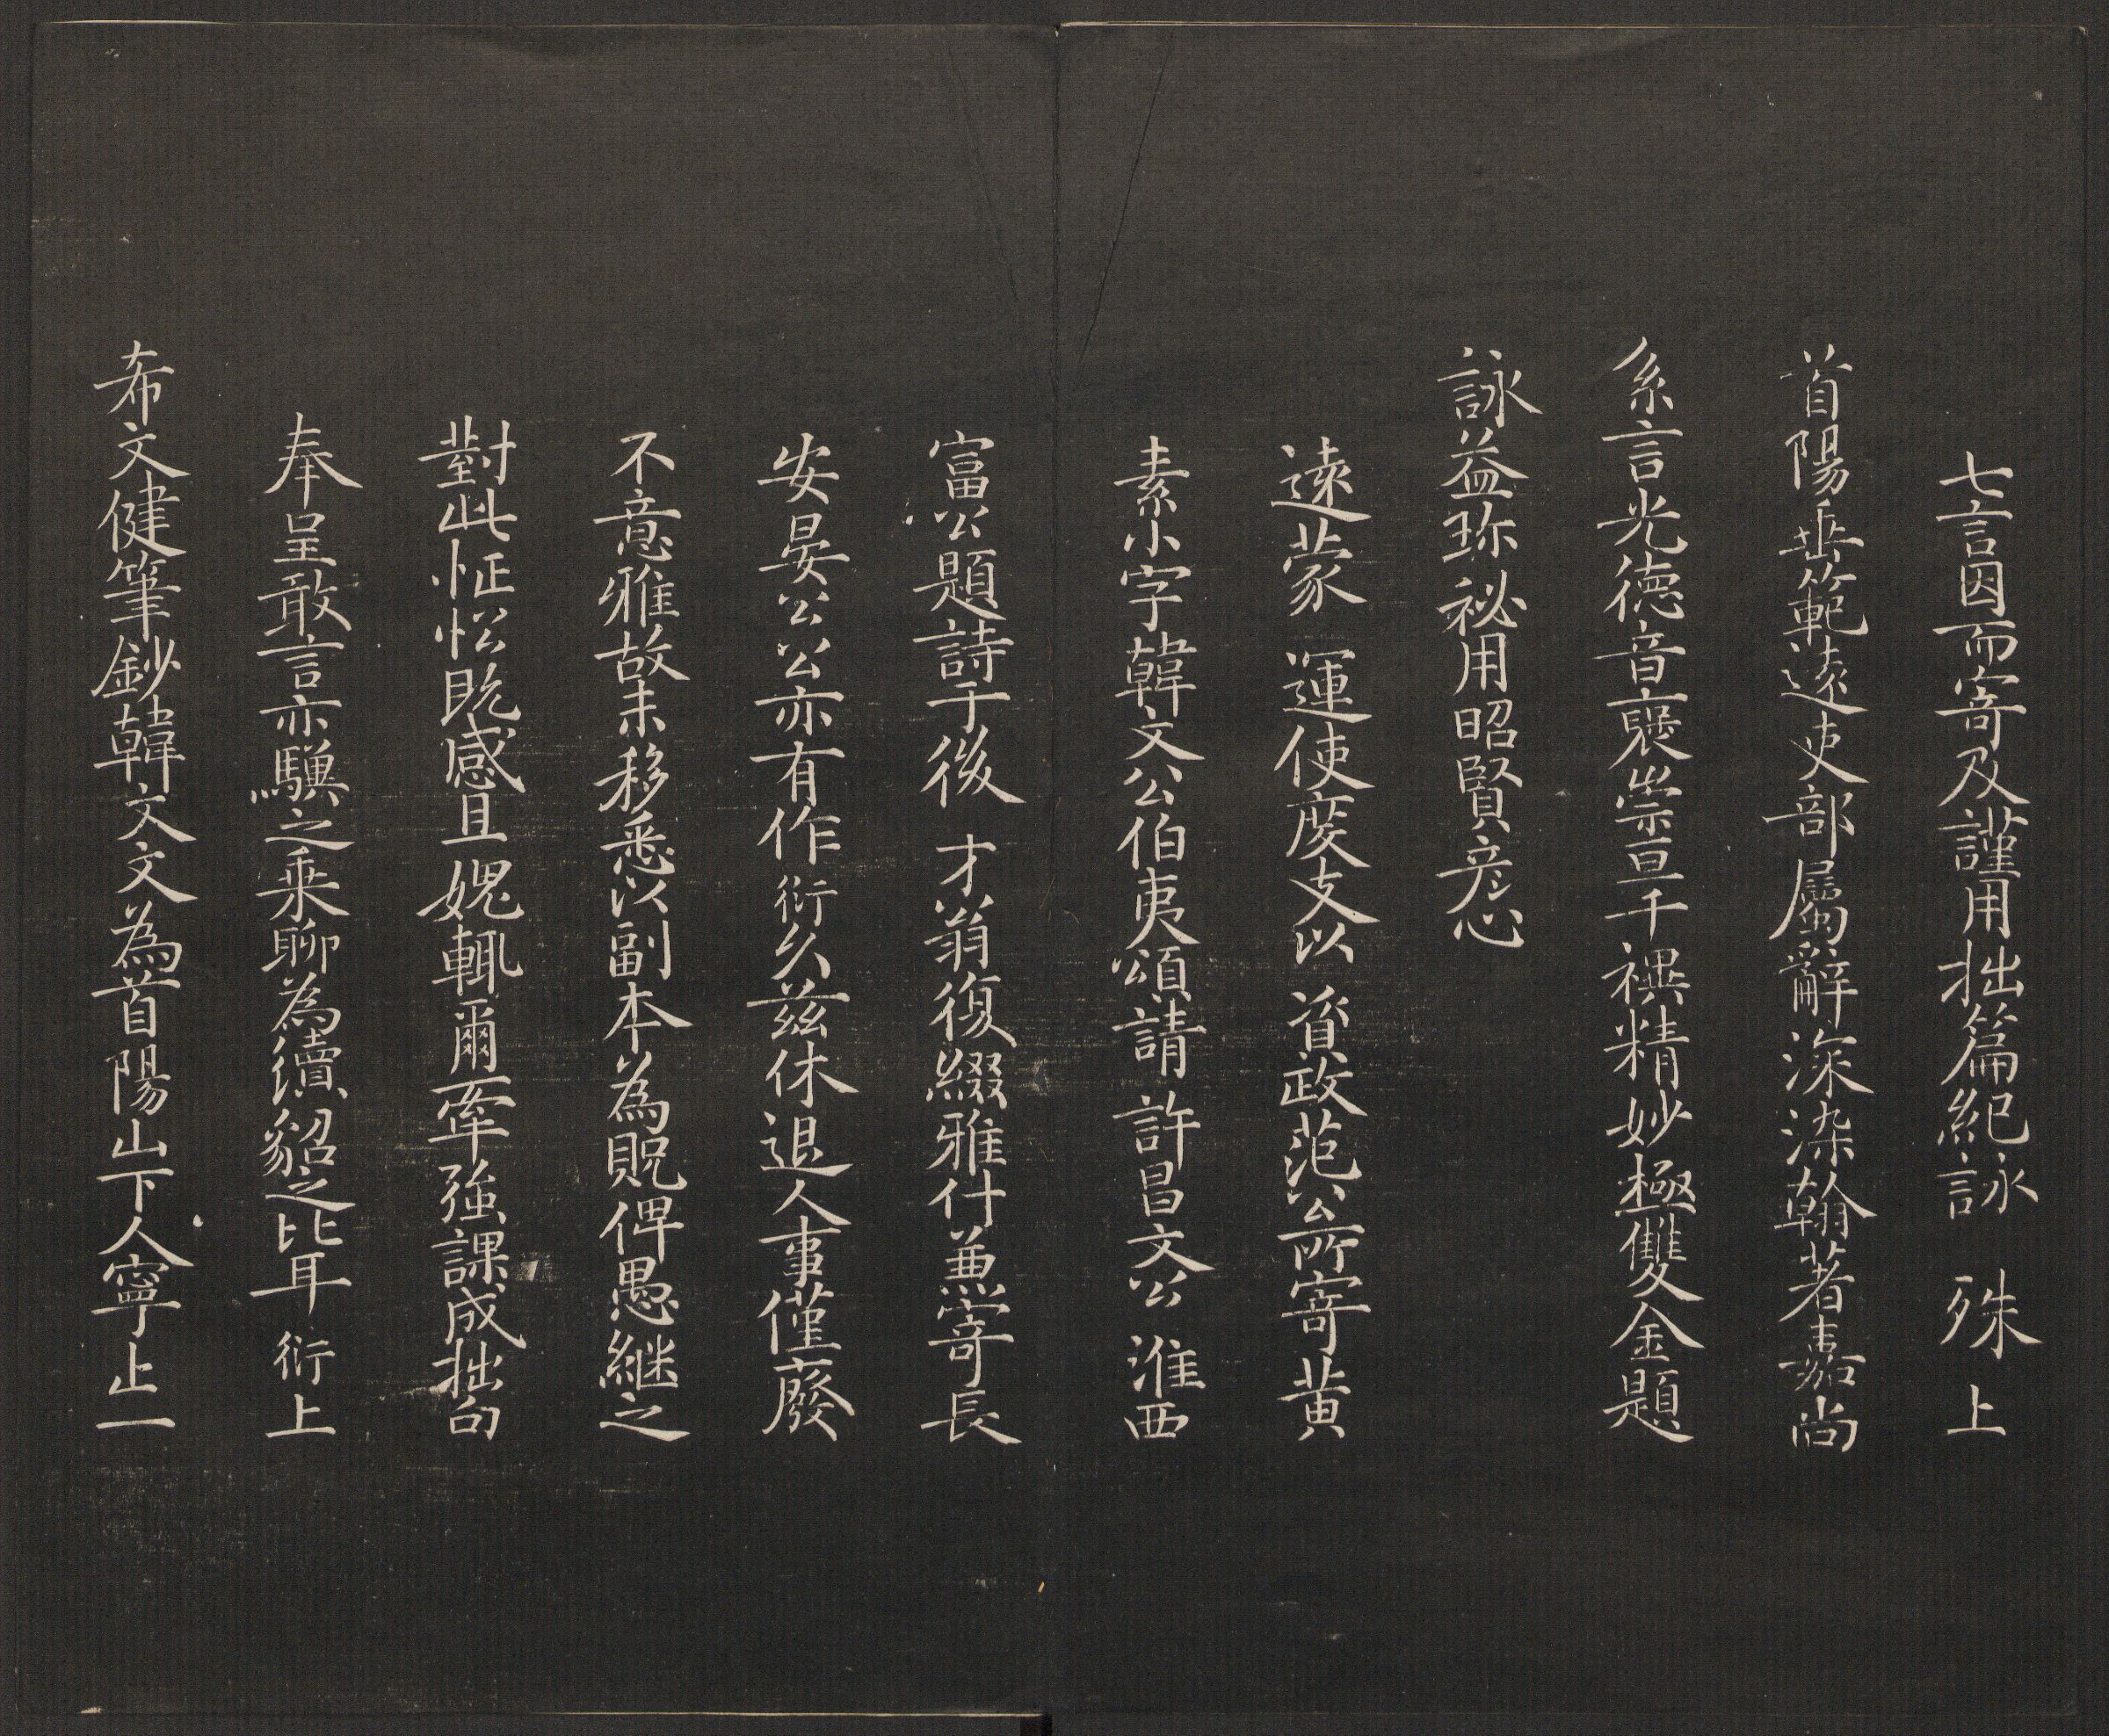 七言因而寄及謹用拙篇紀詠 殊 上
首陽垂範遠吏部屬辭深染翰著嘉尚
系言光德音襃崇亘千禩精妙極雙金題
詠益珎祕用昭賢彦心
遠蒙 運使度支以 資政范公所寄黄
素小字韓文公伯夷頌請 許昌文公 淮西
富公題詩于後 才翁復綴雅什兼寄長
安晏公公亦有作衍久兹休退人事僅廢
不意雅故未移悉以副本為貺俾愚継之
對此怔忪既感且媿輒爾牽強課成拙句
奉呈敢言亦驥之乗聊為續貂之比耳 衍上
希文健筆鈔韓文文為首陽山下人寧止一